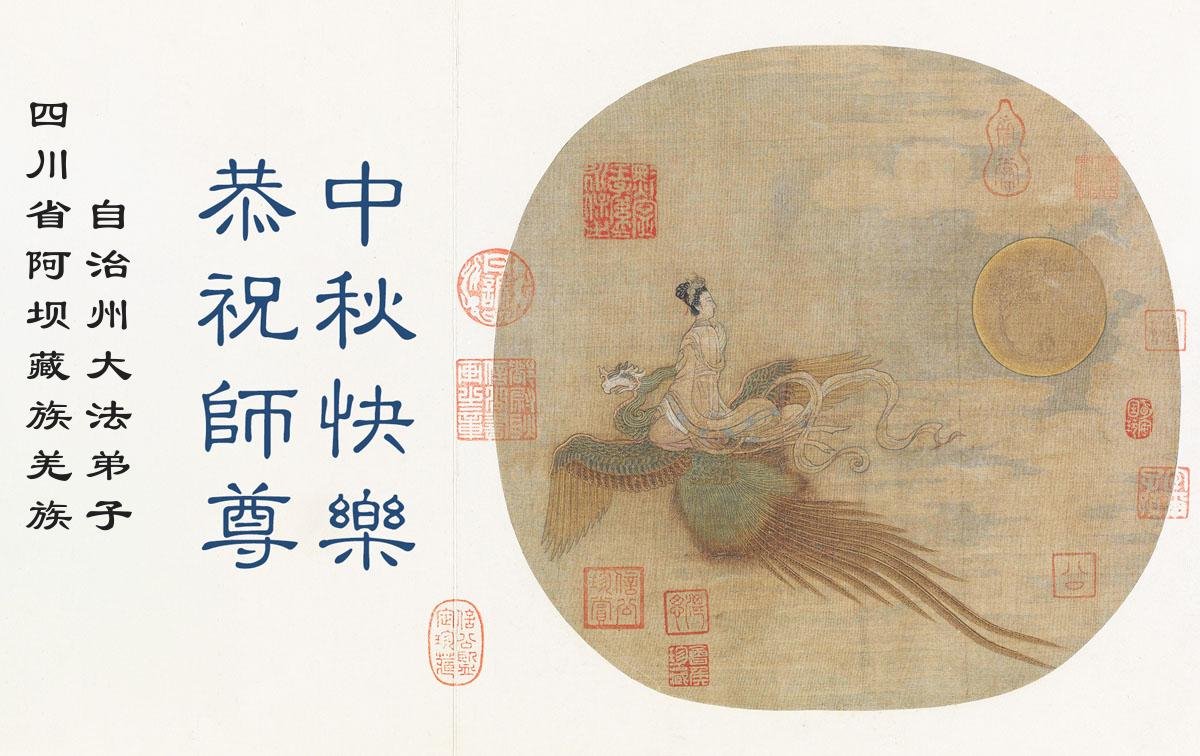 四川省阿坝藏族羌族
自治州大法弟子
恭祝師尊
中秋快樂